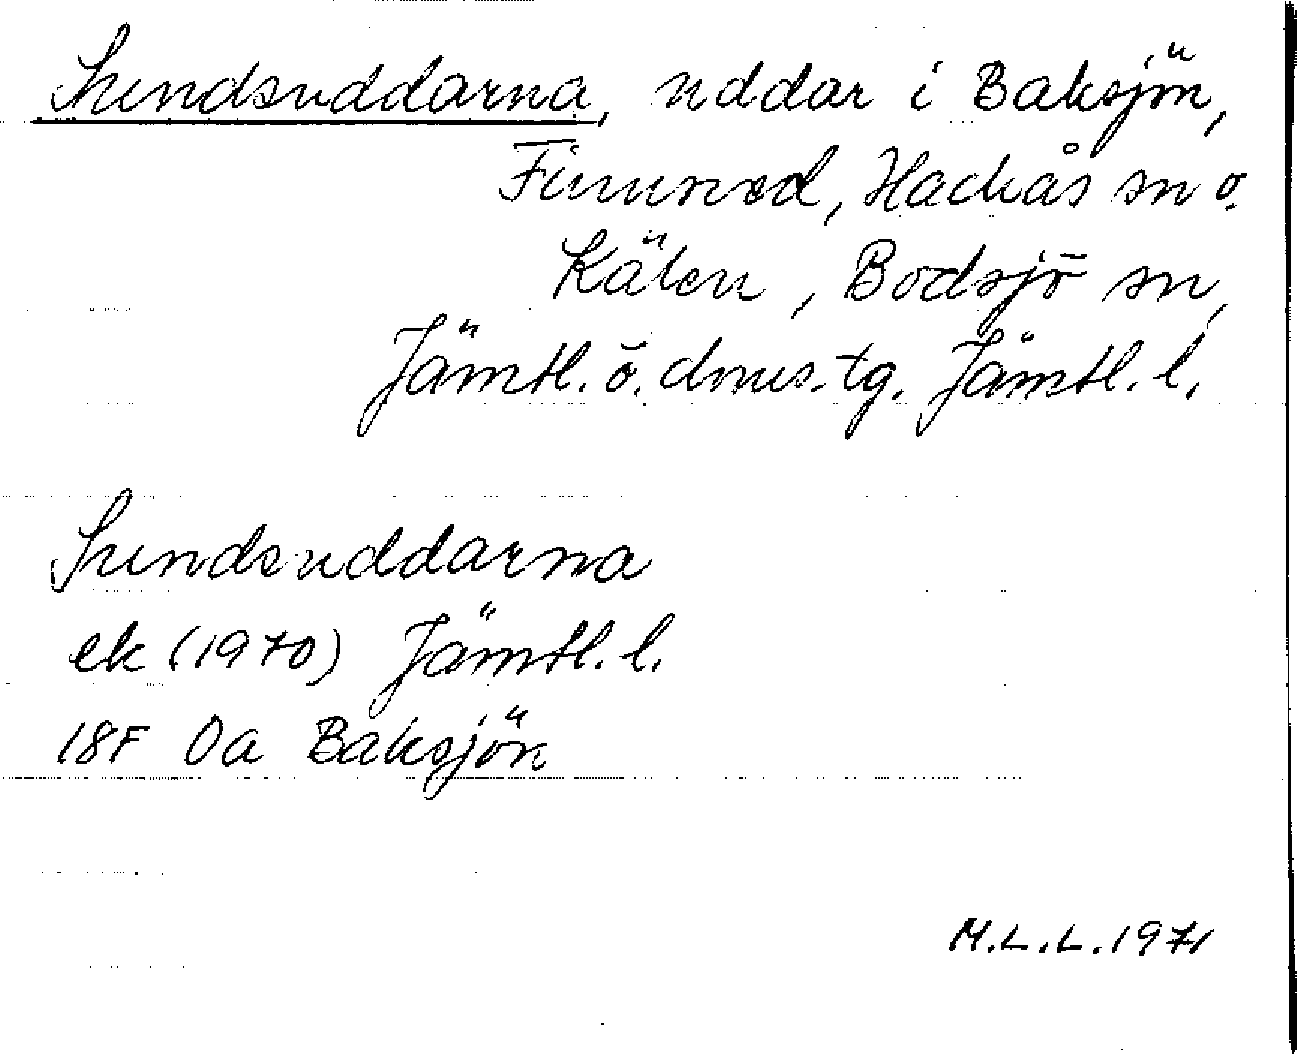 Sundsuddarna, uddar i Baksjön,
Finnsäd, Hackås sn o.
Kälen, Bodsjö sn,
Jämtl. ö. dms. tg. Jämtl. l.
Sundsuddarna
ek (1970) Jämtl. l.
18F 0a Baksjön
M.L.L. 1971